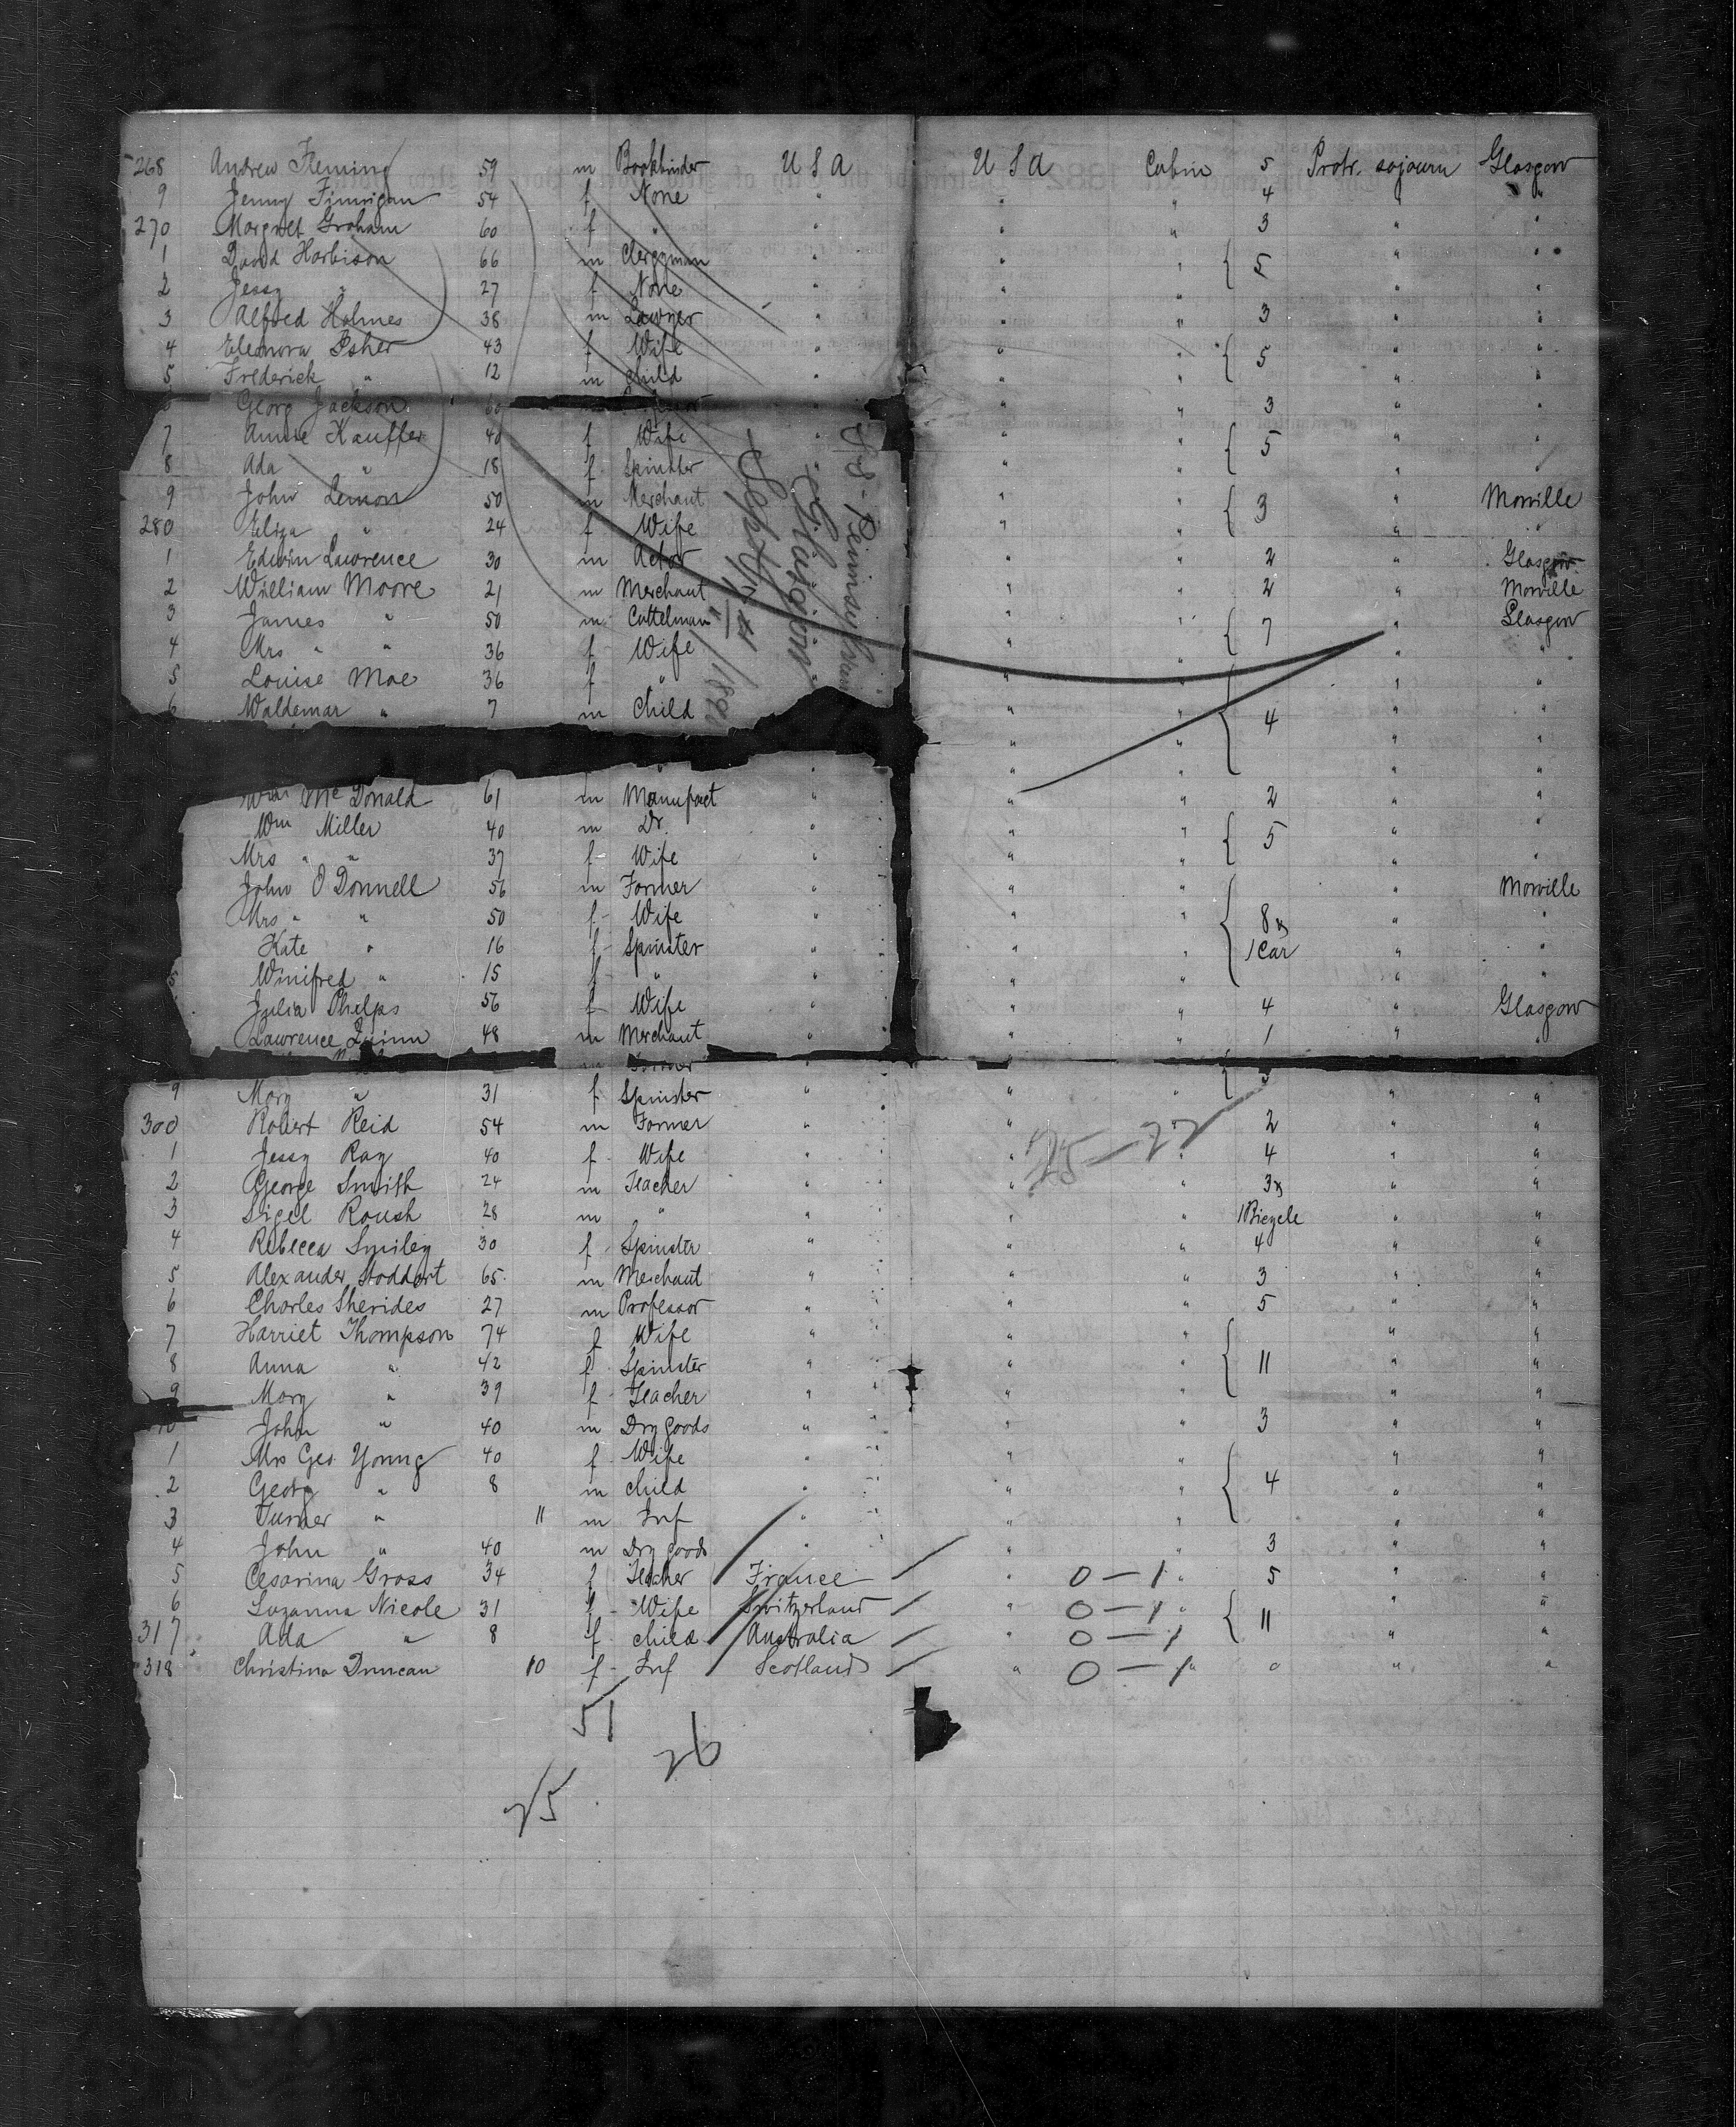 268 Andrew Fleming 59 m Bookbinder U S A U S A Cabin 5 Protr. sojourn Glasgow
9 Jenny Finnigan 54 f None " " " 4 " "
270 Margret Graham 60 f " " " " 3 " "
1 David Harbison 66 m Clergyman " " " { 5 " "
2 Jessy " 27 f None " " " " "
3 Alfred Holmes 38 m Lawyer " " " 3 " "
4 Eleonora Isher 43 f Wife " " " { 5 " "
5 Frederick " 12 m child " " " " "
Georg Jackson 60 " " 3 " "
7 Annie Kauffer 40 f Wife " " " { 5 " "
8 Ada " 18 f Spinster " " " " "
9 John Lemon 50 m Merchant " " { 3 " Morville
280 Eliza " 24 f Wife " " " "
1 Edwin Lawrence 30 m Actor " " 2 " Glasgow
2 William Moore 21 m Merchant " " 2 " Morville
3 James " 50 m Cattelman " " { 7 " Glasgow
4 Mrs " " 36 f Wife " " " "
5 Louise Mae 36 f " " " { 4 " "
6 Waldemar " 7 m child " " " "
S.S. Pennsylvania
Glasgow
Sept 1st / 189
Wm Mc Donald 61 m Manufact " " " 2 " "
Wm Miller 40 m Dr. " " " { 5 " "
Mrs " " 37 f Wife " " " " "
John O'Donnell 56 m Farmer " " " { " Morville
Mrs " " 50 f Wife " " " 8 & " "
Kate " 16 f Spinster " " " 1 Car " "
Winifred " 15 f " " " " " "
Julia Phelps 56 f Wife " " " 4 " Glasgow
Lawrence Quinn 48 m Merchant " " " 1 " "
9 Mary " 31 f Spinster " " " " "
300 Robert Reid 54 m Farmer " " " 2 " "
25-22
1 Jessy Ray 40 f Wife " " " 4 " "
2 George Smith 24 m Teacher " " " 3 & " "
3 Sigel Roush 28 m " " " " 1 Bicycle " "
4 Rebecca Smiley 30 f Spinster " " " 4 " "
5 Alexander Stoddart 65 m Merchant " " " 3 " "
6 Charles Sherides 27 m Professor " " " 5 " "
7 Harriet Thompson 74 f Wife " " " { " "
8 Anna " 42 f Spinster " " " 11 " "
9 Mary " 39 f Teacher " " " " "
10 John " 40 m Dry goods " " " 3 " "
1 Mrs Geo. Young 40 f Wife " " " { " "
2 Georg " 8 m child " " " 4 " "
3 Turner " 11 m Inf " " " " "
4 John " 40 m Dry goods " " " 3 " "
5 Cesarina Gross 34 f Teacher France " 0 - 1 " 5 " "
6 Suzanna Nicole 31 f Wife Switzerland " 0 - 1 " { 11 " "
317 Ada " 8 f child Australia " 0 - 1 " "
318 Christina Duncan 10 f Inf Scotland " 0 - 1 " 0 " "
51
26
25